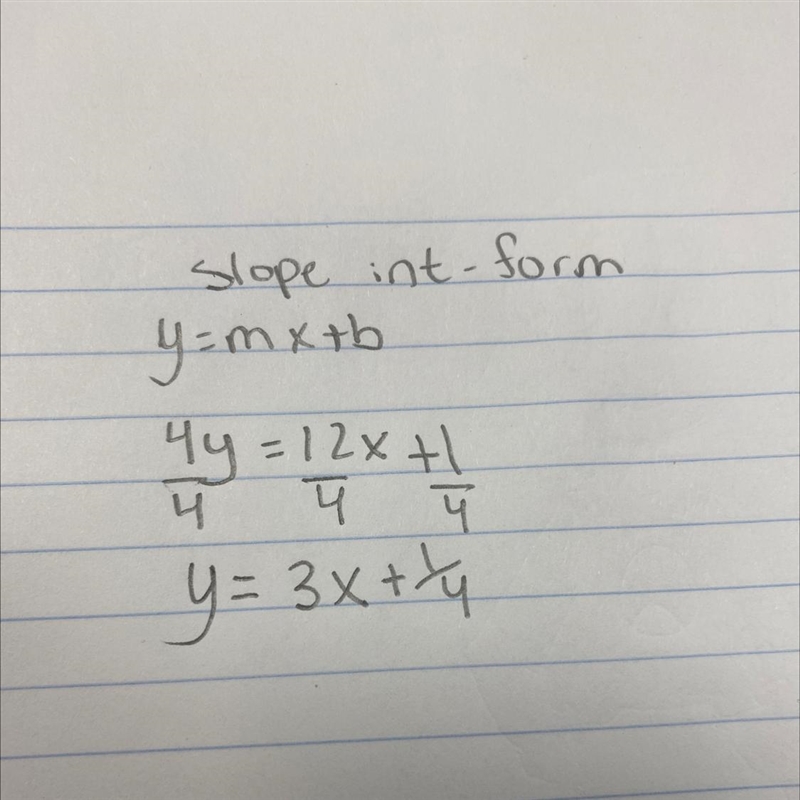 slope int-form
y=mx+b
4y = 12x +1
4 4 4
y = 3x + 1/4